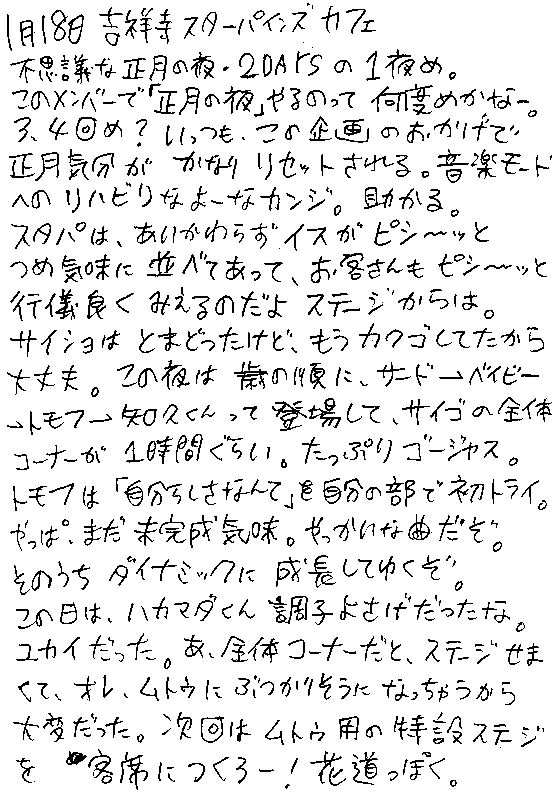 1月18日 吉祥寺 スターパインズ カフェ
不思議な正月の夜・2DAYSの1夜め。
このメンバーで「正月の夜」やるのって 何度めかなー。
3、4回め? いっつも、この企画のおかげで
正月気分が かなり リセットされる。音楽モード
へのリハビリなよーなカンジ。助かる。
スタパは、あいかわらずイスが ピシ〜ッと
つめ気味に並べてあって、お客さんも ピシ〜ッと
行儀良く みえるのだよ ステージからは。
サイショは とまどったけど、もう カクゴしてたから
大丈夫。この夜は 歳の順に、サード→ベイビー
→トモフ→知久くんって 登場して、サイゴの全体
コーナーが 1時間ぐらい。たっぷり ゴージャス。
トモフは「自分らしさなんて」を自分の部で初トライ。
やっぱ、まだ 未完成気味。やっかいな曲だぞ。
そのうち ダイナミックに 成長してゆくぞ。
この日は、ハカマダくん 調子よさげだったな。
ユカイだった。あ、全体コーナーだと、ステージせま
くて、オレ、ムトウに ぶつかりそうに なっちゃうから
大変だった。次回は ムトウ用の特設ステージ
を 客席につくろー! 花道っぽく。